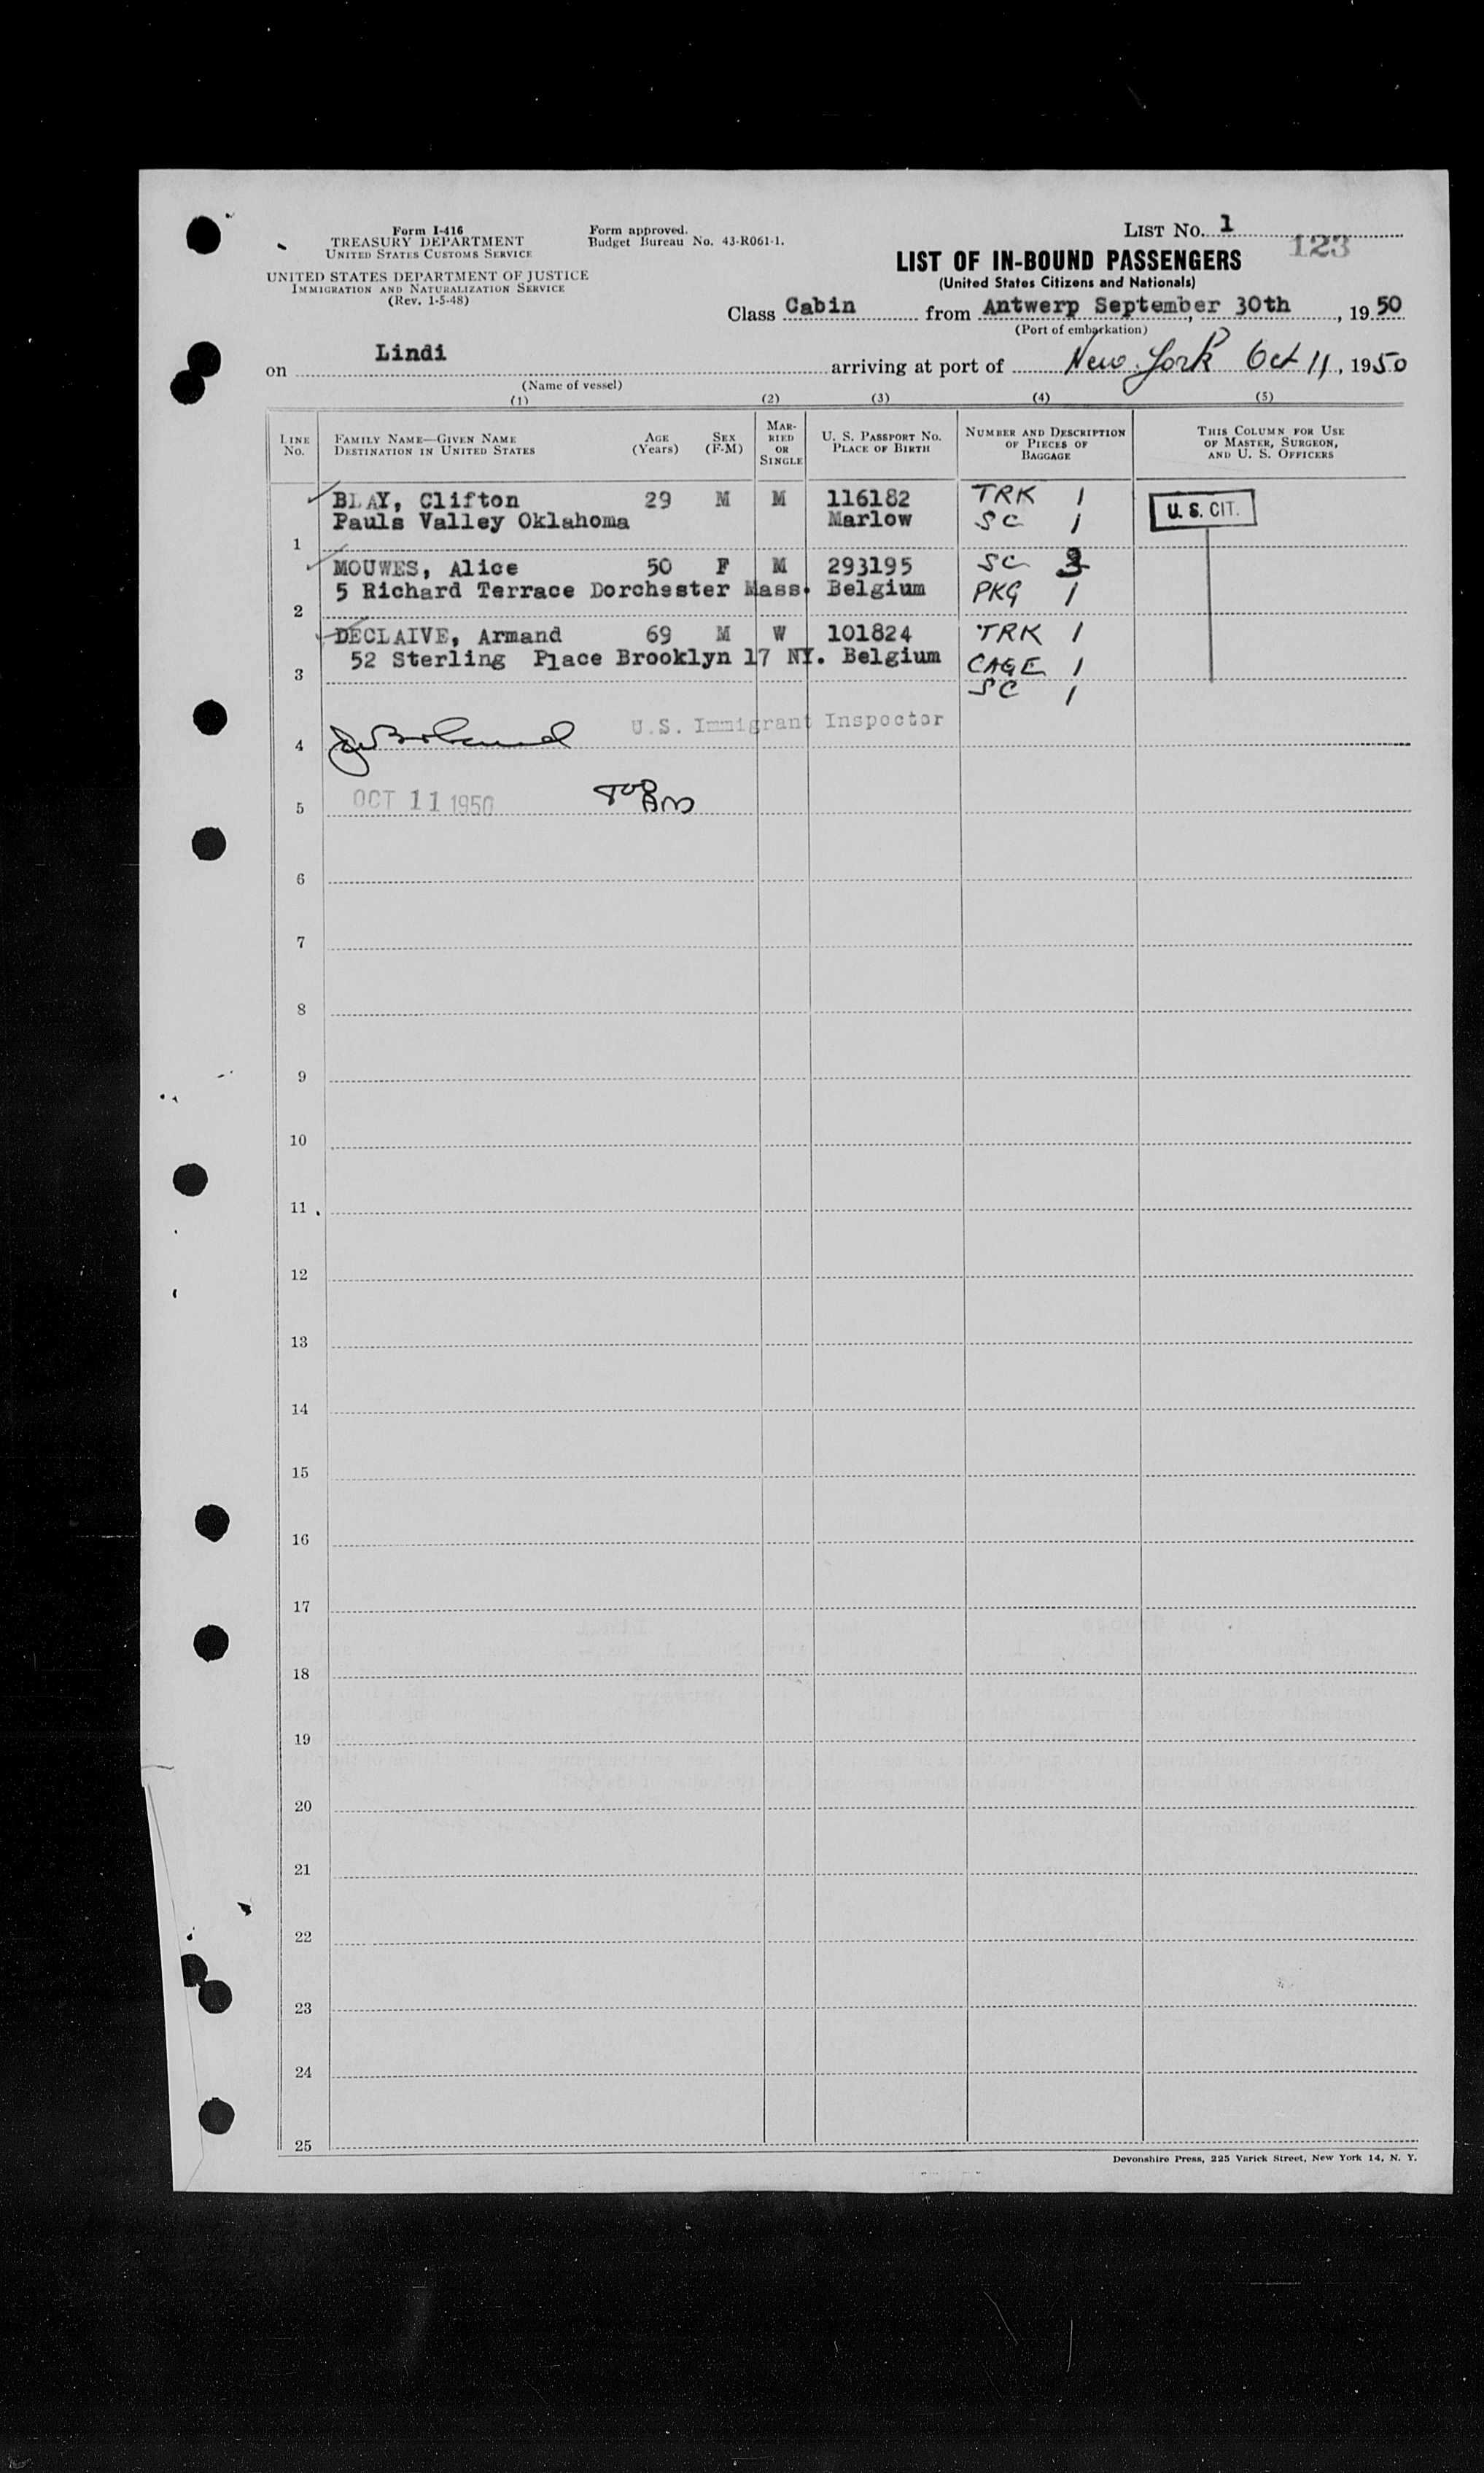 Form I-416
TREASURY DEPARTMENT
UNITED STATES CUSTOMS SERVICE
UNITED STATES DEPARTMENT OF JUSTICE
IMMIGRATION AND NATURALIZATION SERVICE
(Rev. 1-5-48)
Form approved.
Budget Bureau No. 43-R061-1.
LIST No. 1
123
LIST OF IN-BOUND PASSENGERS
(United States Citizens and Nationals)
Class Cabin from Antwerp September 30th, 1950
(Port of embarkation)
on Lindi arriving at port of New York Oct 11, 1950
(Name of vessel)
(1) (2) (3) (4) (5)
LINE No. FAMILY NAME—GIVEN NAME DESTINATION IN UNITED STATES AGE (Years) SEX (F-M) MARRIED OR SINGLE U. S. PASSPORT NO. PLACE OF BIRTH NUMBER AND DESCRIPTION OF PIECES OF BAGGAGE THIS COLUMN FOR USE OF MASTER, SURGEON, AND U. S. OFFICERS
BLAY, Clifton 29 M M 116182 TRK 1 U. S. CIT.
Pauls Valley Oklahoma Marlow SC 1
1
MOUWES, Alice 50 F M 293195 SC 3
5 Richard Terrace Dorchester Mass. Belgium PKG 1
2
DECLAIVE, Armand 69 M W 101824 TRK 1
52 Sterling Place Brooklyn 17 NY. Belgium CAGE 1
3 SC 1
U.S. Immigrant Inspector
4
5 OCT 11 1950
6
7
8
9
10
11
12
13
14
15
16
17
18
19
20
21
22
23
24
25
Devonshire Press, 225 Varick Street, New York 14, N. Y.